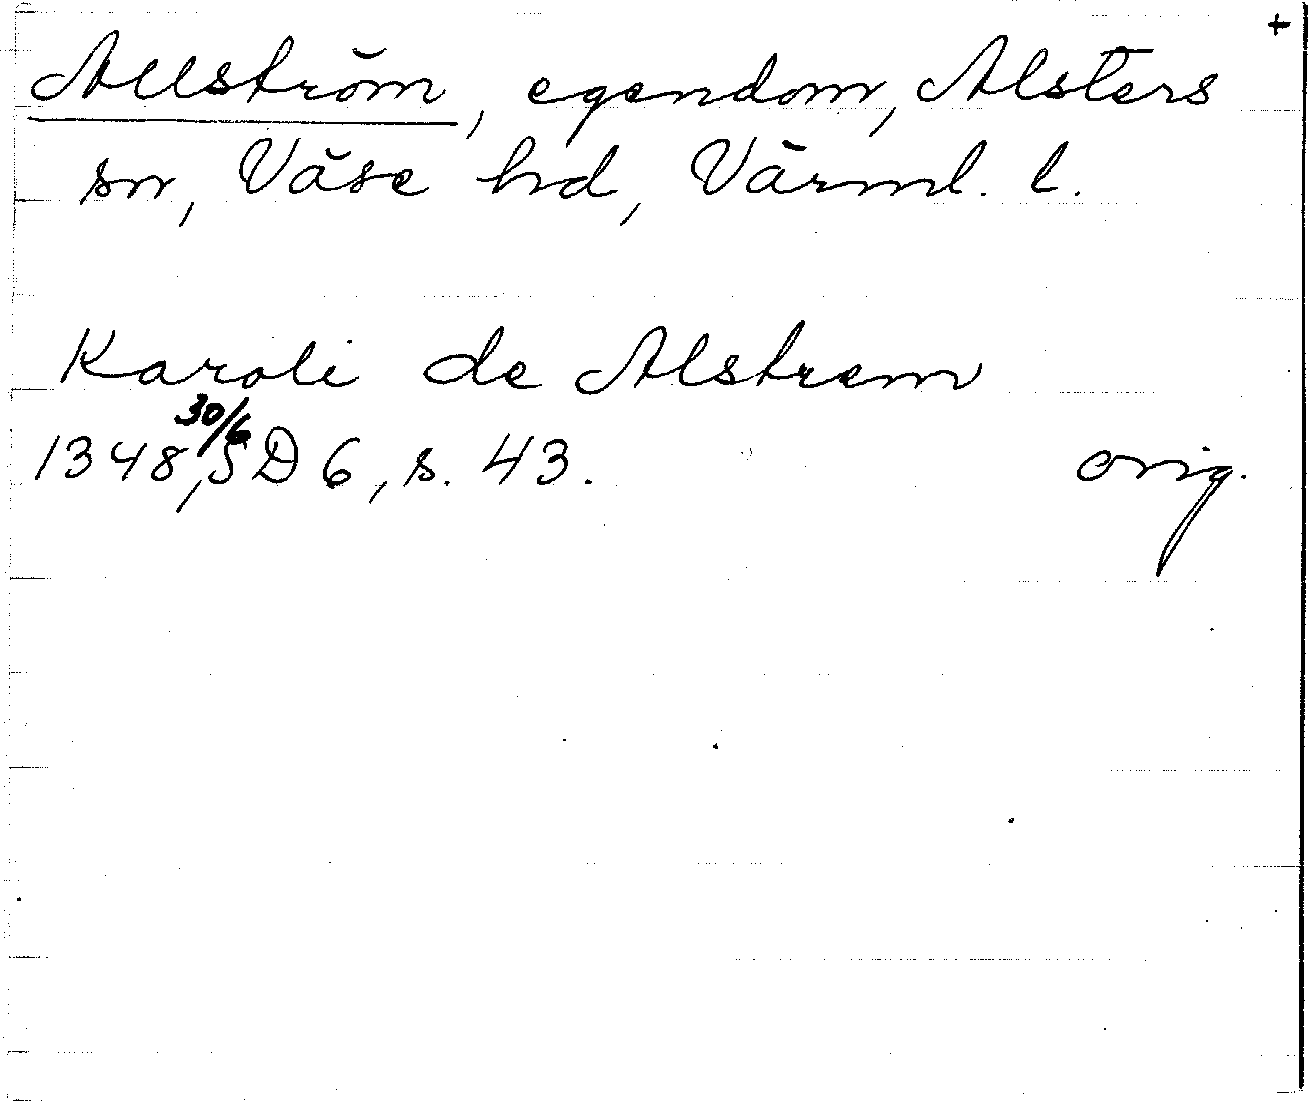 +
Allström, egendom, Alsters
sn, Väse hd, Värml. l.
Karoli de Alstrem
1348 30/6, SD 6, s. 43. orig.